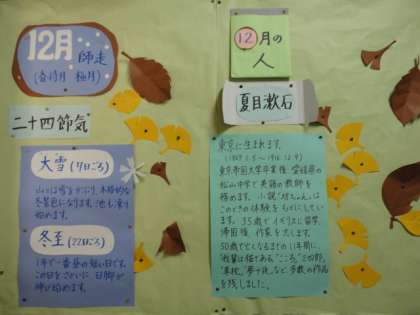 12月 師走
(春待月 極月)
二十四節気
大雪(7日ごろ)
山々は雪をかぶり、本格的な
冬景色になります。池も凍り
始めます。
冬至(22日ごろ)
1年で一番昼の短い日です。
この日をさかいに、日脚が
伸び始めます。
12月の
人
夏目漱石
東京に生まれます。
東京帝国大学卒業後、愛媛県の
松山中学で英語の教師を
務めます。小説「坊ちゃん」は
このときの体験をもとにしてい
ます。35歳でイギリスに留学。
帰国後、作家を志します。
50歳で亡くなるまでの11年間に、
「我輩は猫である」「こころ」「三四郎」
「草枕」「夢十夜」など多数の作品
を残しました。